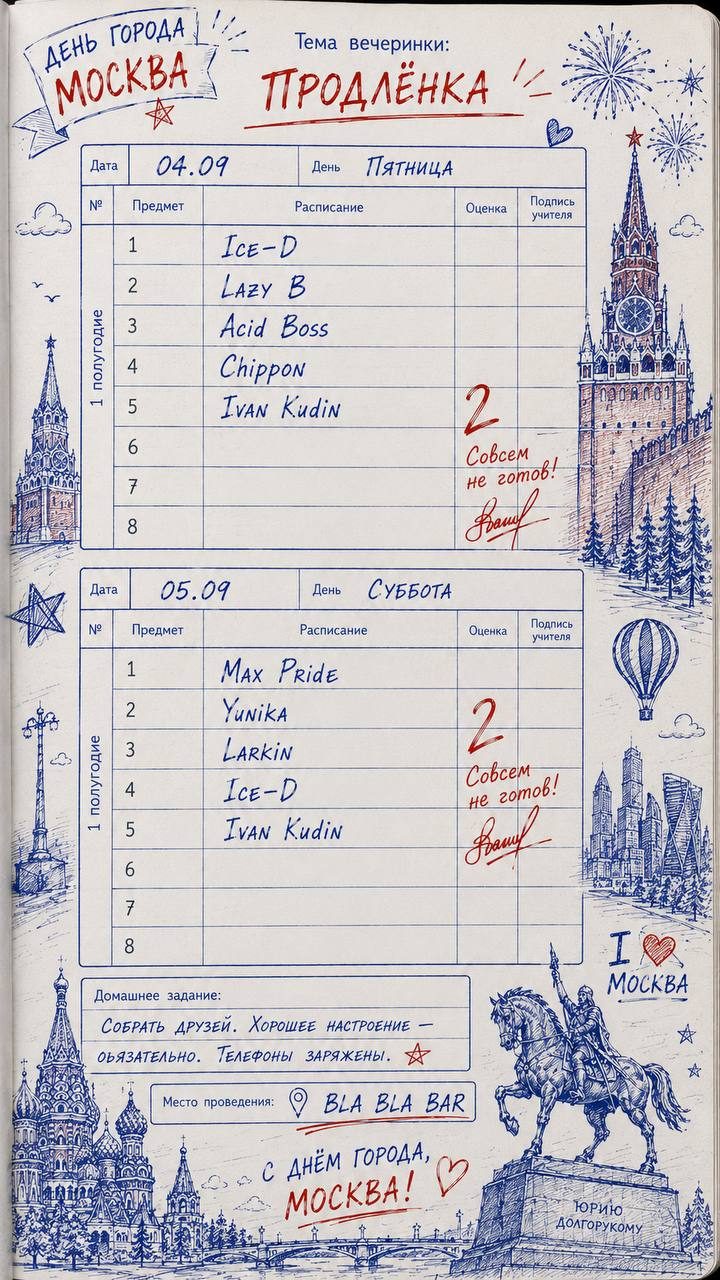 ДЕНЬ ГОРОДА
МОСКВА
Тема вечеринки:
ПРОДЛЁНКА
Дата 04.09 День ПЯТНИЦА
№ Предмет Расписание Оценка Подпись учителя
1 полугодие
1 Ice-D
2 Lazy B
3 Acid Boss
4 Chippon
5 Ivan Kudin
6
7
8
2
Совсем
не готов!
Дата 05.09 День СУББОТА
№ Предмет Расписание Оценка Подпись учителя
1 полугодие
1 Max Pride
2 Yunika
3 Larkin
4 Ice-D
5 Ivan Kudin
6
7
8
2
Совсем
не готов!
I
МОСКВА
Домашнее задание:
Собрать друзей. Хорошее настроение —
оьязательно. Телефоны заряжены.
Место проведения: BLA BLA BAR
С ДНЁМ ГОРОДА,
МОСКВА!
ЮРИЮ
ДОЛГОРУКОМУ